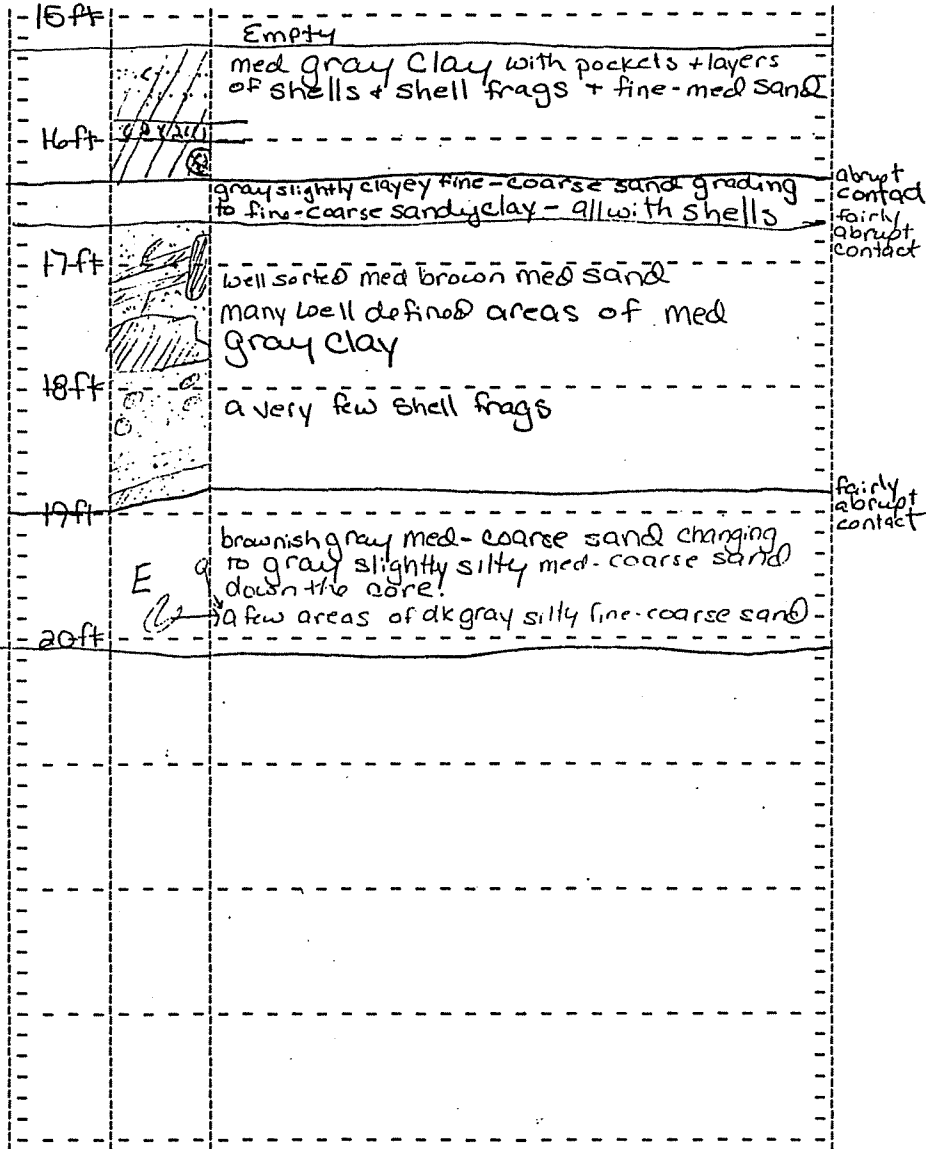 15ft
Empty
med gray clay with pockets + layers
of shells & shell frags + fine-med sand
16ft
abrupt
contact
gray slightly clayey fine-coarse sand grading
to fine-coarse sandy clay - all with shells
fairly
abrupt
contact
17ft
well sorted med brown med sand
many well defined areas of med
gray clay
18ft
a very few shell frags
fairly
abrupt
contact
19ft
brownish gray med-coarse sand changing
to gray slightly silty med-coarse sand
down the core.
E
a few areas of dk gray silty fine-coarse sand
20ft